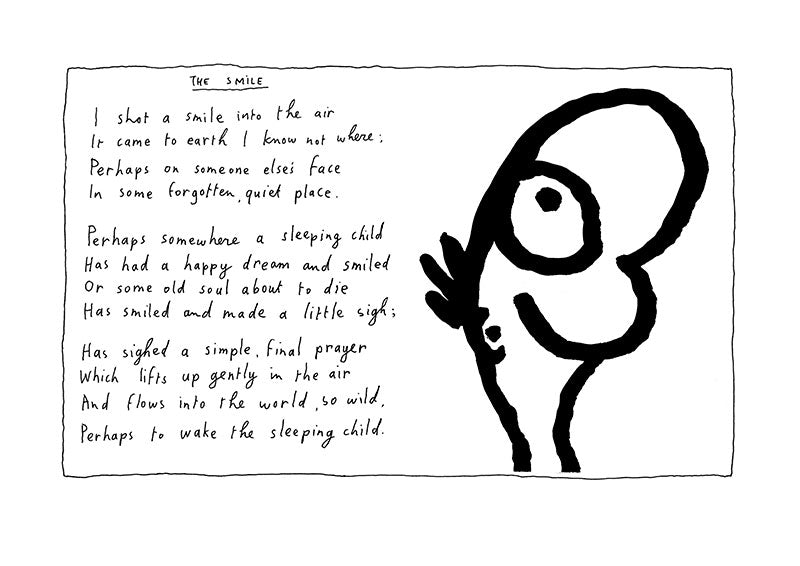 THE SMILE
I shot a smile into the air
It came to earth I know not where;
Perhaps on someone else's face
In some forgotten, quiet place.
Perhaps somewhere a sleeping child
Has had a happy dream and smiled
Or some old soul about to die
Has smiled and made a little sigh;
Has sighed a simple, final prayer
Which lifts up gently in the air
And flows into the world, so wild,
Perhaps to wake the sleeping child.